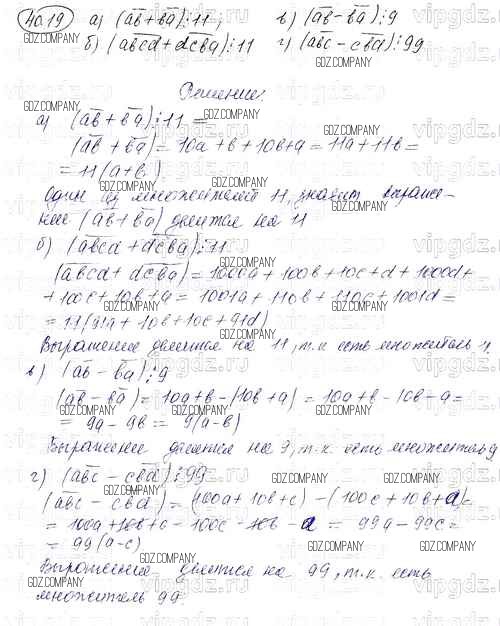 40.19 а) (ab + ba) ⋮ 11; в) (ab - ba) ⋮ 9
б) (abcd + dcba) ⋮ 11 г) (abc - cba) ⋮ 99
Решение:
а) (ab + ba) ⋮ 11 =
(ab + ba) = 10a + b + 10b + a = 11a + 11b =
= 11(a + b).
Один из множителей 11, значит выраже-
ние (ab + ba) делится на 11
б) (abcd + dcba) ⋮ 11
(abcd + dcba) = 1000a + 100b + 10c + d + 1000d +
+ 100c + 10b + a = 1001a + 110b + 110c + 1001d =
= 11(91a + 10b + 10c + 91d)
Выражение делится на 11, т.к есть множитель 11.
в) (ab - ba) ⋮ 9
(ab - ba) = 10a + b - (10b + a) = 10a + b - 10b - a =
= 9a - 9b = 9(a - b)
Выражение делится на 9, т.к. есть множитель 9
г) (abc - cba) ⋮ 99
(abc - cba) = (100a + 10b + c) - (100c + 10b + a) =
= 100a + 10b + c - 100c - 10b - a = 99a - 99c =
= 99(a - c)
Выражение делится на 99, т.к. есть
множитель 99.
GDZ.COM19
vipgdz.ru